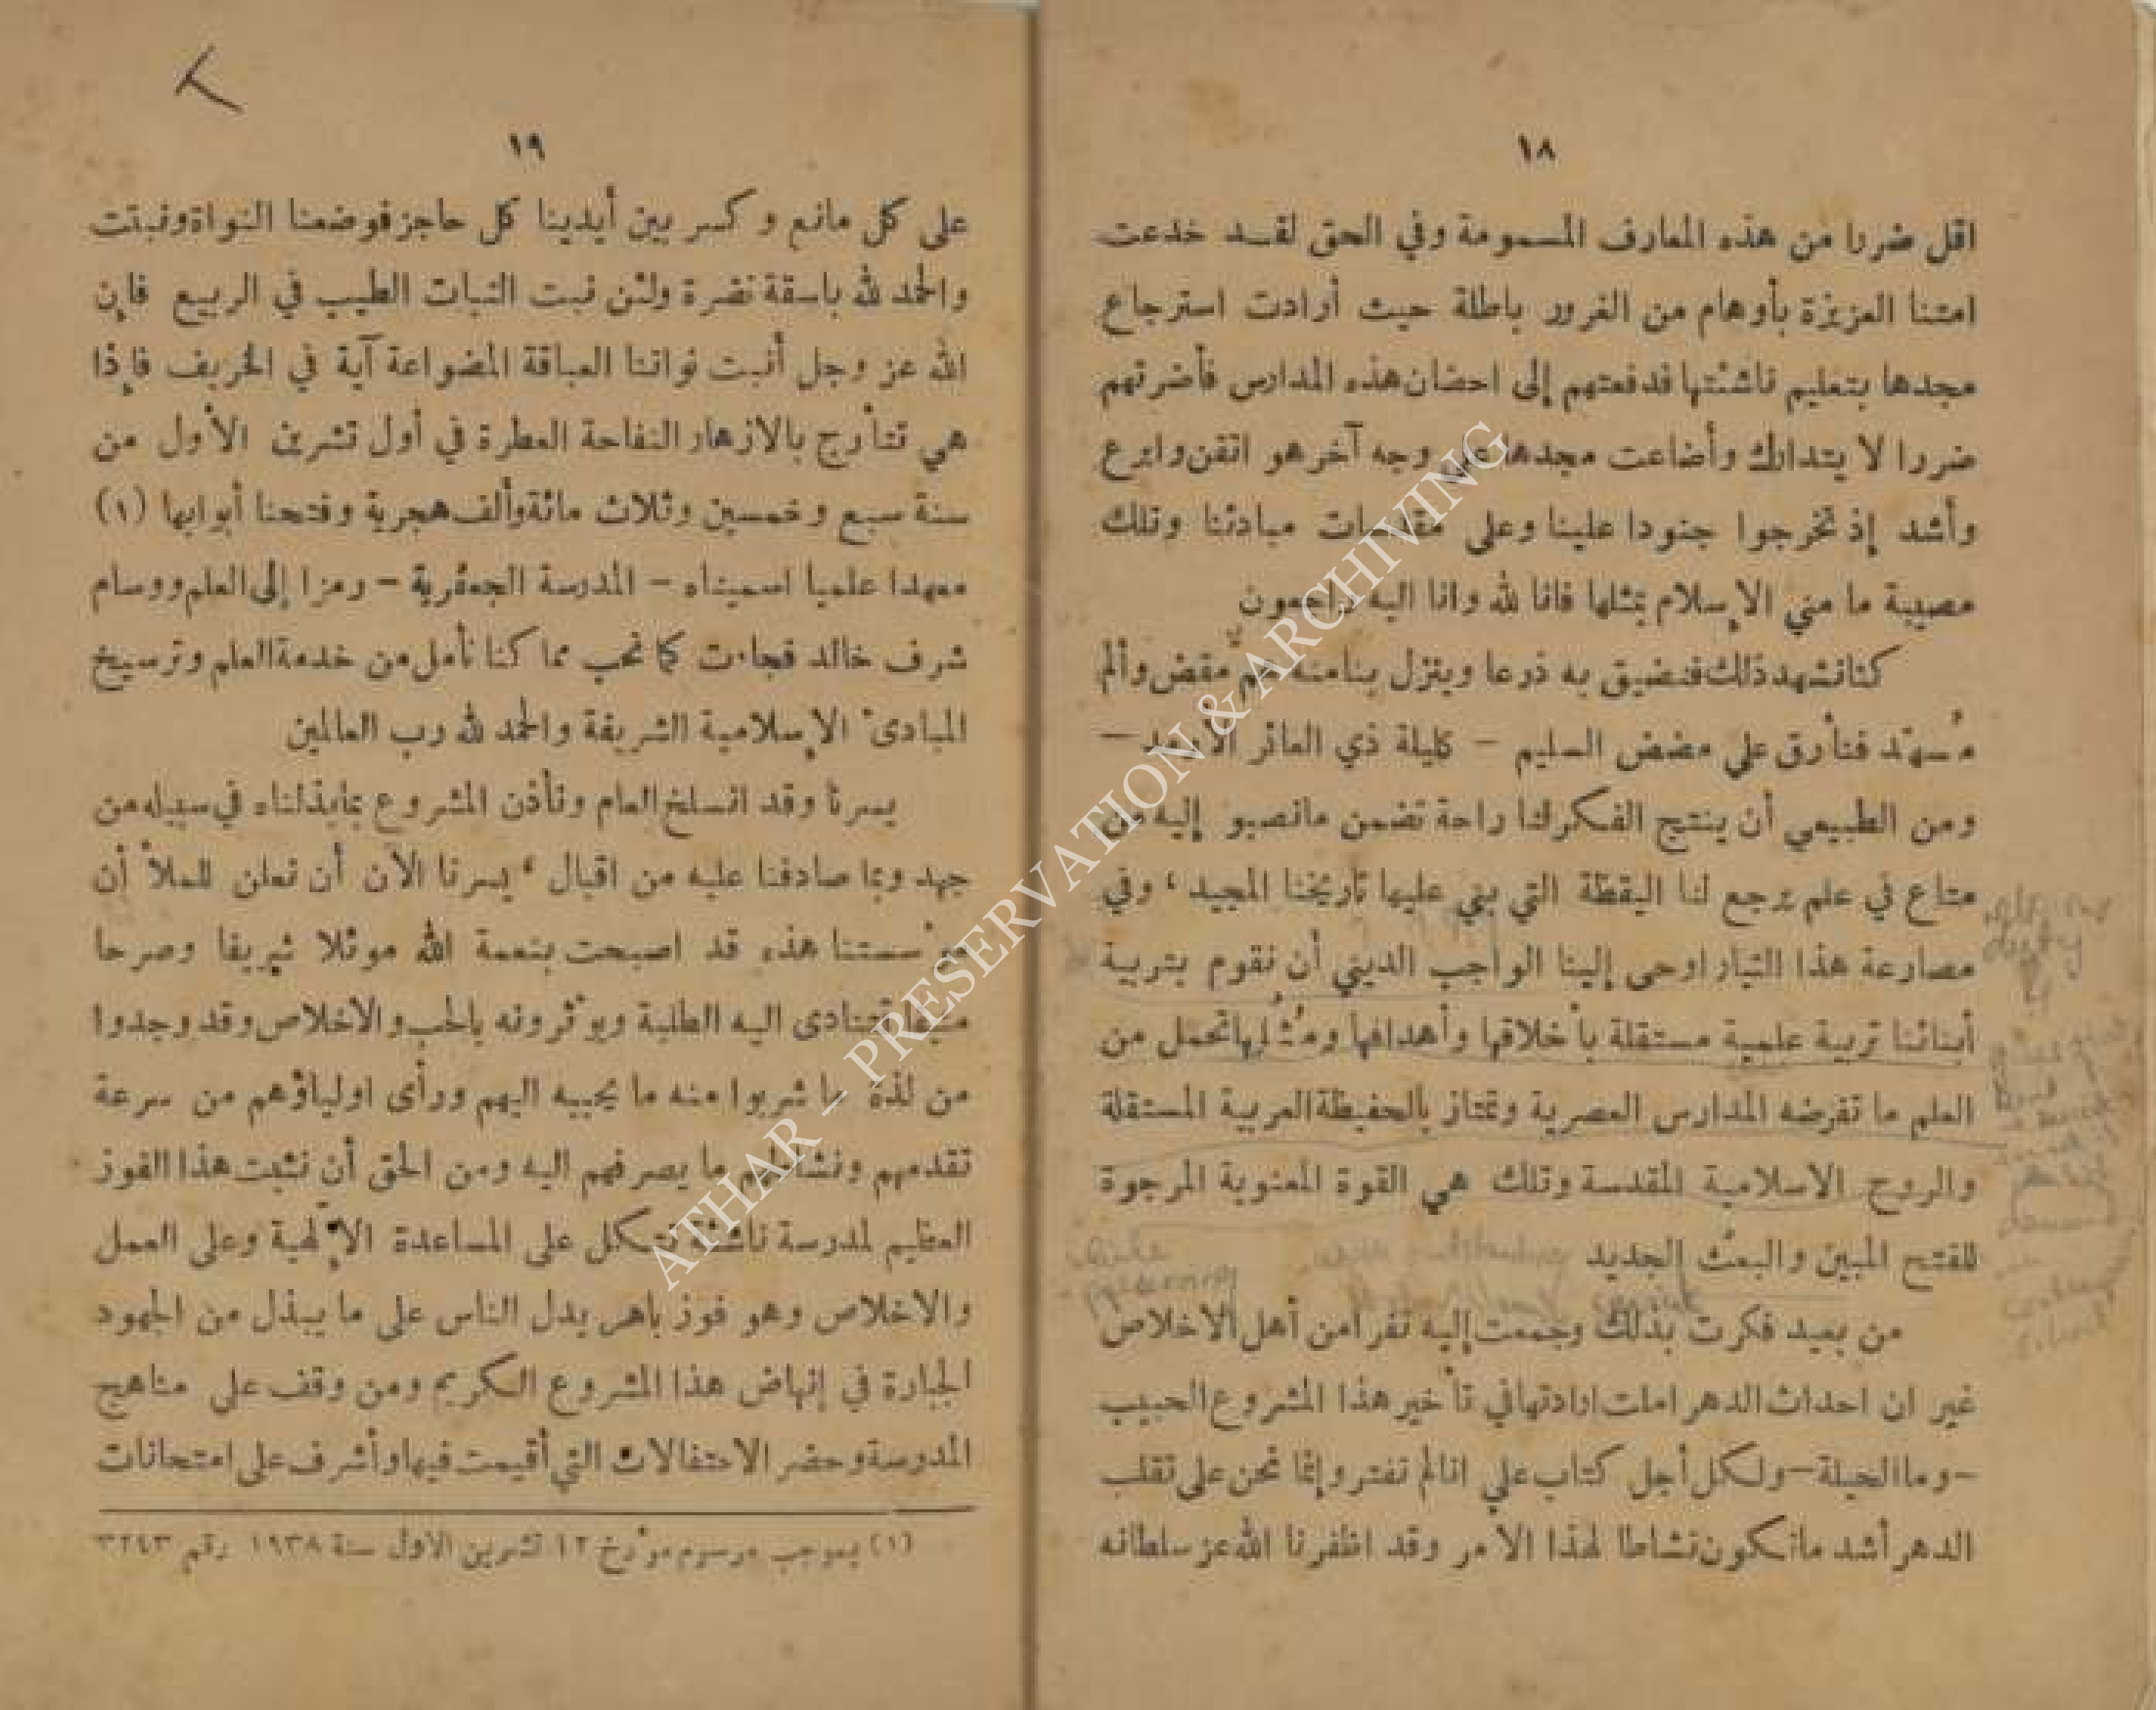 ١٨
اقل ضررا من هذه المعارف المسمومة وفي الحق لقد خدعت
امتنا العزيزة بأوهام من الغرور باطلة حيث أرادت استرجاع
مجدها بتعليم ناشئتها فدفعتهم إلى احضان هذه المدارس فأضرتهم
ضررا لا يتدارك وأضاعت مجدها على وجه آخر هو اتقن وابرع
وأشد إذ تخرجوا جنودا علينا وعلى مقدسات مبادئنا وتلك
مصيبة ما مني الإسلام بمثلها فانا لله وانا اليه راجعون
كنا نشهد ذلك فنضيق به ذرعا وينزل بنا منه هم مقض وألم
مُسهّد فنأرق على مضض السليم – كليلة ذي العائر الأرمد –
ومن الطبيعي أن ينتج الفكر لنا راحة تضمن ما نصبو إليه من
متاع في علم يرجع لنا اليقظة التي بني عليها تاريخنا المجيد ، وفي
مصارعة هذا التيار اوحى إلينا الواجب الديني أن نقوم بتربية
أبنائنا تربية علمية مستقلة بأخلاقها وأهدافها ومُثُلها تحمل من
العلم ما تفرضه المدارس العصرية وتمتاز بالحفيظة العربية المستقلة
والروح الاسلامية المقدسة وتلك هي القوة المعنوية المرجوة
للفتح المبين والبعث الجديد
من بعيد فكرت بذلك وجمعت إليه نفرا من أهل الاخلاص
غير ان احداث الدهر املت ارادتها في تأخير هذا المشروع الحبيب
– وما الحيلة – ولكل أجل كتاب على انا لم نفتر وإنما نحن على تقلب
الدهر أشد ما نكون نشاطا لهذا الأمر وقد اظفرنا الله عز سلطانه
religious
duty
while
preserving
١٩
على كل مانع وكسر بين أيدينا كل حاجز فوضعنا النواة ونبتت
والحمد لله باسقة نضرة ولئن نبت النبات الطيب في الربيع فإن
الله عز وجل أنبت نواتنا العباقة المضواعة آية في الخريف فإذا
هي تتأرج بالازهار النفاحة العطرة في أول تشرين الأول من
سنة سبع وخمسين وثلاث مائة وألف هجرية وفتحنا أبوابها (١)
معهدا علميا اسميناه – المدرسة الجعفرية – رمزا إلى العلم ووسام
شرف خالد فجاءت كما نحب مما كنا نأمل من خدمة العلم وترسيخ
المبادئ الإسلامية الشريفة والحمد لله رب العالمين
يسرنا وقد انسلخ العام وتأذن المشروع بما بذلناه في سبيله من
جهد وبما صادفنا عليه من اقبال ، يسرنا الآن أن نعلن للملأ أن
مؤسستنا هذه قد اصبحت بنعمة الله موئلا شريفا وصرحا
منيفا يتنادى اليه الطلبة ويؤثرونه بالحب والاخلاص وقد وجدوا
من لذة ما شربوا منه ما يحببه اليهم ورأى اولياؤهم من سرعة
تقدمهم ونشاطهم ما يصرفهم اليه ومن الحق أن نثبت هذا الفوز
العظيم لمدرسة ناشئة تتكل على المساعدة الإلهية وعلى العمل
والاخلاص وهو فوز باهر يدل الناس على ما يبذل من الجهود
الجبارة في إنهاض هذا المشروع الكريم ومن وقف على مناهج
المدرسة وحضر الاحتفالات التي أقيمت فيها وأشرف على امتحانات
(١) بموجب مرسوم مؤرخ ١٢ تشرين الاول سنة ١٩٣٨ رقم ٣٢٤٣
ATHAR – PRESERVATION & ARCHIVING